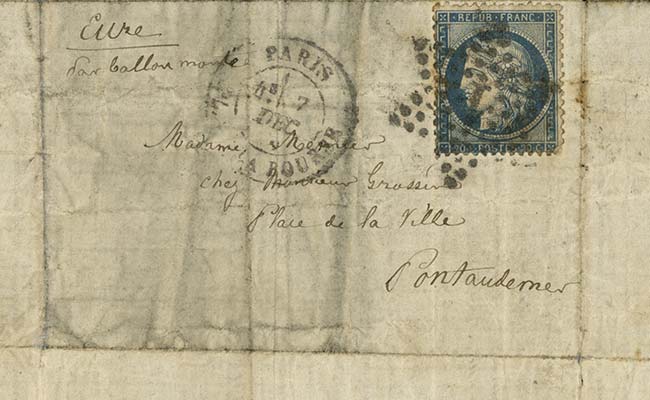 Eure
par ballon monté
PARIS
7
DEC
REPUB. FRANC.
20 POSTES 20 C
Madame Mercier
chez Monsieur
Place de la Ville
Pontaudemer